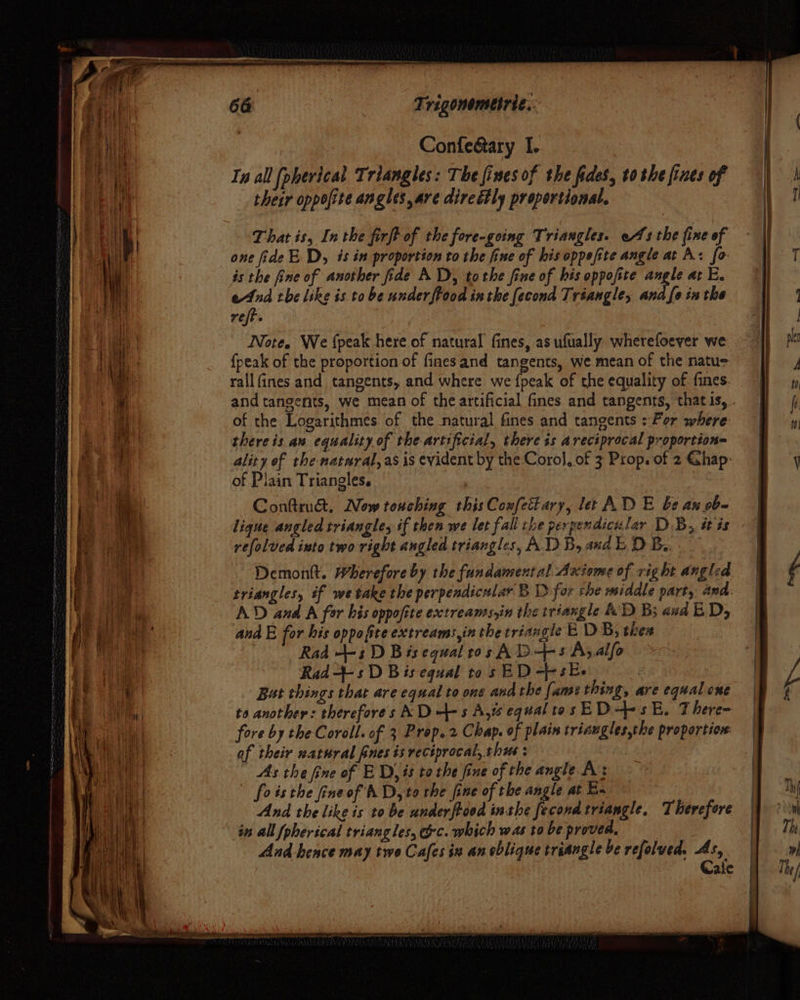 66 Trigonometrie.
Confectary I.
In all ſpherical Triangles: The ſines of the ſides, to the ſines of
their oppoſite angles, are directly proportional.
That is, In the firſt of the fore-going Triangles. As the ſine of
one ſide E D, is in proportion to the ſine of his oppoſite angle at A: ſo
is the ſine of another ſide A D, to the ſine of his oppoſite angle at E.
And the like is to be underſtood in the ſecond Triangle, and ſo in the
reſt.
Note. We ſpeak here of natural ſines, as uſually wherefoever we
ſpeak of the proportion of ſines and tangents, we mean of the natu-
rall ſines and tangents, and where we ſpeak of the equality of ſines
and tangents, we mean of the artificial ſines and tangents, that is,
of the Logarithmes of the natural ſines and tangents: For where
there is an equality of the artificial, there is a reciprocal proportion-
ality of the natural, as is evident by the Corol. of 3 Prop. of 2 Chap.
of Plain Triangles.
Conſtruct. Now touching this Confectary, let A D E be an ob-
lique angled triangle, if then we let fall the perpendicular D B, it is
reſolved into two right angled triangles, A D B, and E D B.
Demonſt. Wherefore by the fundamental Axiome of right angled
triangles, if we take the perpendicular B D for the middle part, and
A D and A for his oppoſite extreams, in the triangle A D B; and E D,
and E for his oppoſite extreams, in the triangle E D B, then
Rad + s D B is equal to s A D + s A, alſo
Rad + s D B is equal to s E D + s E.
But things that are equal to one and the ſame thing, are equal one
to another: therefore s A D + s A, is equal to s E D + s E. There-
fore by the Coroll. of 3 Prop. 2 Chap. of plain triangles, the proportion
of their natural ſines is reciprocal, thus:
As the ſine of E D, is to the ſine of the angle A:
ſo is the ſine of A D, to the ſine of the angle at E.
And the like is to be underſtood in the ſecond triangle. Therefore
in all ſpherical triangles, &c. which was to be proved.
And hence may two Caſes in an oblique triangle be reſolved. As,
Caſe